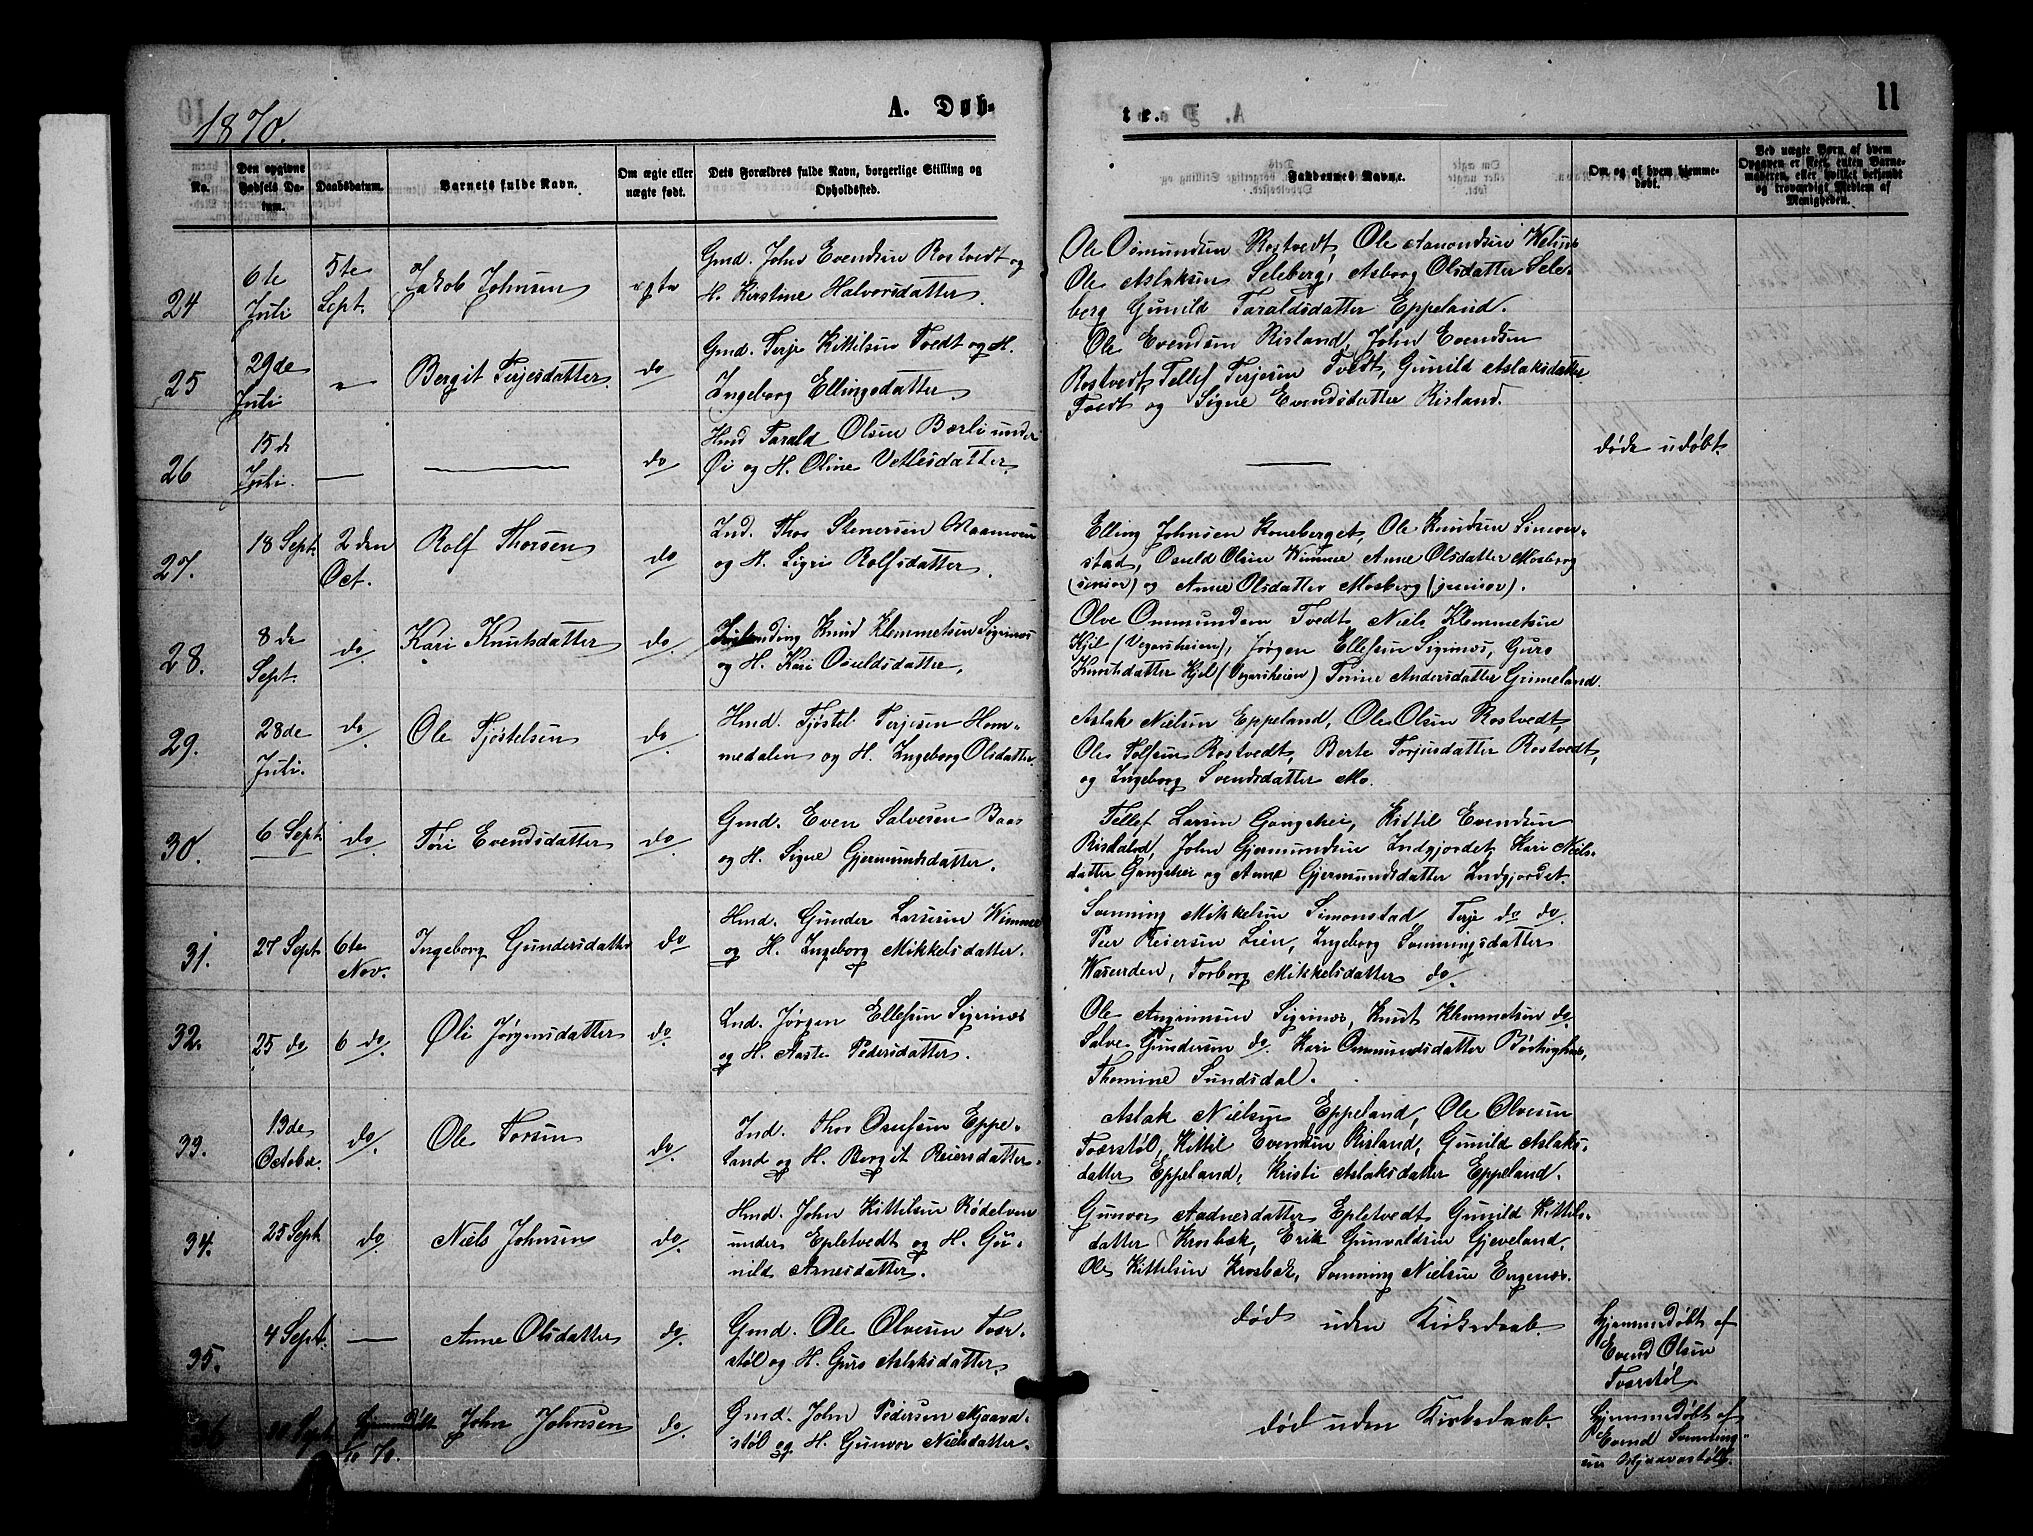 1870.
A. Døb-
ter.
11
No.
Den opgivne Fødsels Datum.
Daabsdatum.
Barnets fulde Navn.
Om ægte eller uægte født.
Dets Forældres fulde Navn, borgerlige Stilling og Opholdssted.
Faddernes Navne.
Om og af hvem hjemmedøbt.
Ved uægte Børn af hvem Opgaven er skeet, enten Barnemoderen, eller hvilket bekjendt og troværdigt Medlem af Menigheden.
24
6te Juli
5te Sept.
Jakob Johnsen
ægte
Gmd. John Evendsen Rostvedt og
H. Kirstine Halvorsdatter.
Ole Osmundsen Rostvedt, Ole Aamondsen
Ole Aslaksen Seleberg, Asborg Olsdatter Sele-
berg Gunild Taraldsdatter Eppeland.
25
29de Juli
"
Bergit Terjesdatter
do
Gmd. Terje Kittilsen Tvedt og H.
Ingeborg Ellingsdatter
Ole Evendsen Risland, John Evendsen
Rostvedt, Tellef Terjesen Tvedt, Gunild Aslaksdatter
Tvedt og Signe Evendsdatter Risland.
26
15de Juli.
—
—
do
Hmd Tarald Olsen Bærli under
Øi og H. Oline Vetlesdatter.
—
døde udøbt.
27.
18 Sept.
2den Oct.
Rolf Thorsen
do
Ind. Thor Stenersen
og H. Sigri Rolfsdatter.
Elling Johnsen Roneberget, Ole Knudsen Simon-
stad, Osuld Olsen Wimme Anne Olsdatter Mosberg
(senior) og Anne Olsdatter Mosberg (junior).
28.
8de Sept.
do
Kari Knutsdatter
do
Knud Klemmetsen Sigrinæs
og H. Kari Osuldsdatter.
Olve Ommundsen Tvedt Niels Klemmetsen
Kjel (Vegarsheien), Jørgen Ellefsen Sigrinæs, Guro
Knutsdatter Kjel (Vegarsheien) Tomine Andersdatter Grimeland.
29.
28de Juli.
do
Ole Tjøstelsen
do
Hmd. Tjøstel Terjesen Hom-
medalen og H. Ingeborg Olsdatter.
Aslak Nielsen Eppeland, Ole Olsen Rostvedt,
Ole Tolfsen Rostvedt, Berte Torjusdatter Rostvedt,
og Ingeborg Svendsdatter Mo.
30.
6 Sept.
do
Tøri Evendsdatter
do
Gmd. Even Salvesen Baas
og H. Signe Gjermundsdatter.
Tellef Larsen Gangshei, Kittil Evendsen
Risdalød, John Gjermundsen Indgjordet Kari Niels-
datter Gangshei og Anne Gjermundsdatter Indgjordet.
31.
27 Sept.
6te Nov.
Ingeborg Gundersdatter
do
Hmd. Gunder Larsen Wimme
og H. Ingeborg Mikkelsdatter.
Svenning Mikkelsen Simonstad Terje do do.
Peer Reiersen Lien, Ingeborg Svenningsdatter
Wasenden, Torborg Mikkelsdatter do.
32.
25 do
6 do
Oli Jørgensdatter
do
Ind. Jørgen Ellefsen Sigrinæs
og H. Aaste Pedersdatter.
Ole Angrimsen Sigrinæs, Knut Klemmetsen do.
Salve Gundersen do. Kari Ommundsdatter
Thomine Sundsdal.
33.
13de October.
do.
Ole Torsen
do.
Ind. Thor Osufsen Eppe-
land og H. Bergit Reiersdatter.
Aslak Nielsen Eppeland, Ole Olvesen
Tværstøl, Kittil Evensen Risland, Gunild Aslaks-
datter Eppeland, Kristi Aslaksdatter Eppeland.
34.
25 Sept.
do
Niels Johnsen
do.
Hmd. John Kittilsen Rødelven
under Epletvedt og H. Gu-
nild Arnesdatter.
Gunvor Aadnesdatter Epletvedt Gunild Kittils-
datter Krosbæk, Erik Gunvaldsen Gjeveland,
Ole Kittilsen Krosbæk, Svenning Nielsen Engenæs.
35.
4 Sept.
—
Anne Olsdatter
do.
Gmd. Ole Olvesen Tvær-
støl og H. Guro Aslaksdatter.
død uden Kirkedaab.
Hjemmedøbt af
Evend Olsen
Tværstøl.
36
30 Sept.
/10 70.
John Johnsen
do.
Gmd. John Pedersen Mjaava-
støl og H. Gunvor Nielsdatter.
død uden Kirkedaab.
Hjemmedøbt af
Evend Svenning-
sen Mjaavastøl.